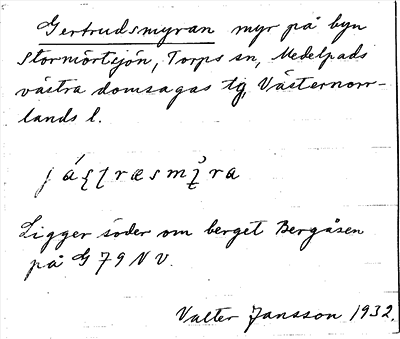 Gertrudsmyran myr på byn
Stormörtsjön, Torps sn, Medelpads
västra domsagas tg, Västernorr-
lands l.
Ligger söder om berget Bergåsen
på G 79 N V.
Valter Jansson 1932.